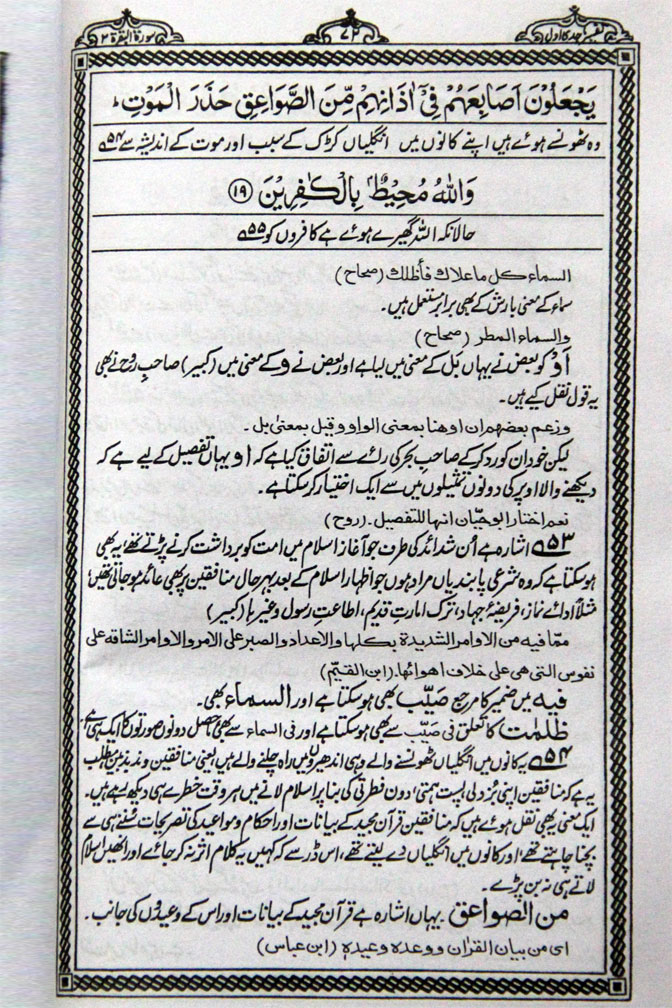 تفسیر ماجدی اول
۷۲
سورۃ البقرۃ ۲
يَجْعَلُوْنَ اَصَابِعَهُمْ فِيْٓ اٰذَانِهِمْ مِّنَ الصَّوَاعِقِ حَذَرَ الْمَوْتِ ؕ
وہ ٹھونسے ہوئے ہیں اپنے کانوں میں انگلیاں کڑک کے سبب اور موت کے اندیشہ سے ۵۴
وَاللّٰهُ مُحِيْطٌۢ بِالْكٰفِرِيْنَ ﴿۱۹﴾
حالانکہ اللہ گھیرے ہوئے ہے کافروں کو ۵۵
السماء کل ما علاك فأظلك (صحاح)
سماء کے معنی بارش کے بھی برابر مستعمل ہیں۔
والسماء المطر (صحاح)
اَوْ کو بعض نے یہاں بَل کے معنی میں لیا ہے اور بعض نے وَ کے معنی میں (کبیر) صاحبِ روح نے بھی
یہ قول نقل کیے ہیں۔
وزعم بعضهم ان او هنا بمعنی الواو وقیل بمعنیٰ بل۔
لیکن خود ان کو رد کر کے صاحبِ بحر کی رائے سے اتفاق کیا ہے کہ او یہاں تفصیل کے لیے ہے کہ
دیکھنے والا اوپر کی دونوں تمثیلوں میں سے ایک اختیار کر سکتا ہے۔
نعم اختار ابو حیّان انها للتفصیل۔ (روح)
۵۳ اشارہ ہے اُن شدائد کی طرف جو آغازِ اسلام میں امت کو برداشت کرنے پڑتے تھے، یہ بھی
ہو سکتا ہے کہ وہ شرعی پابندیاں مراد ہوں جو اظہارِ اسلام کے بعد بہرحال منافقین پر بھی عائد ہو جاتی تھیں،
مثلاً ادائے نماز، فریضۂ جہاد، ترک امارتِ قدیم، اطاعتِ رسول وغیرہا (کبیر)
ممّا فیه من الاوامر الشدیدة بکلها والاعداد والصبر علی الامر والاوامر الشاقه علی
نفوس التی هی علی خلاف اهوائها۔ (ابن القیّم)
فیه میں ضمیر کا مرجع صیّب بھی ہو سکتا ہے اور السماء بھی۔
ظلمت کا تعلق فی صَیّب سے بھی ہو سکتا ہے اور فی السماء سے بھی، حاصل دونوں صورتوں کا ایک ہی ہے۔
۵۴ یہ کانوں میں انگلیاں ٹھونسنے والے وہی اندھیروں میں راہ چلنے والے ہیں، یعنی منافقین و مذبذبین مطلب
یہ ہے کہ منافقین اپنی بزدلی، پست ہمتی، دون فطرتی کی بنا پر اسلام لانے میں ہر وقت خطرے ہی دیکھ رہے ہیں۔
ایک معنی یہ بھی نقل ہوئے ہیں کہ منافقین قرآن مجید کے بیانات اور احکام و مواعید کی تصریحات سُننے ہی سے
بچنا چاہتے تھے، اور کانوں میں انگلیاں دے لیتے تھے، اس ڈر سے کہ کہیں یہ کلام اثر نہ کر جائے اور انھیں اسلام
لاتے ہی نہ بن پڑے۔
من الصواعق۔ یہاں اشارہ ہے قرآن مجید کے بیانات اور اس کے وعیدوں کی جانب۔
ای من بیان القرآن ووعده وعیده (ابن عباس)